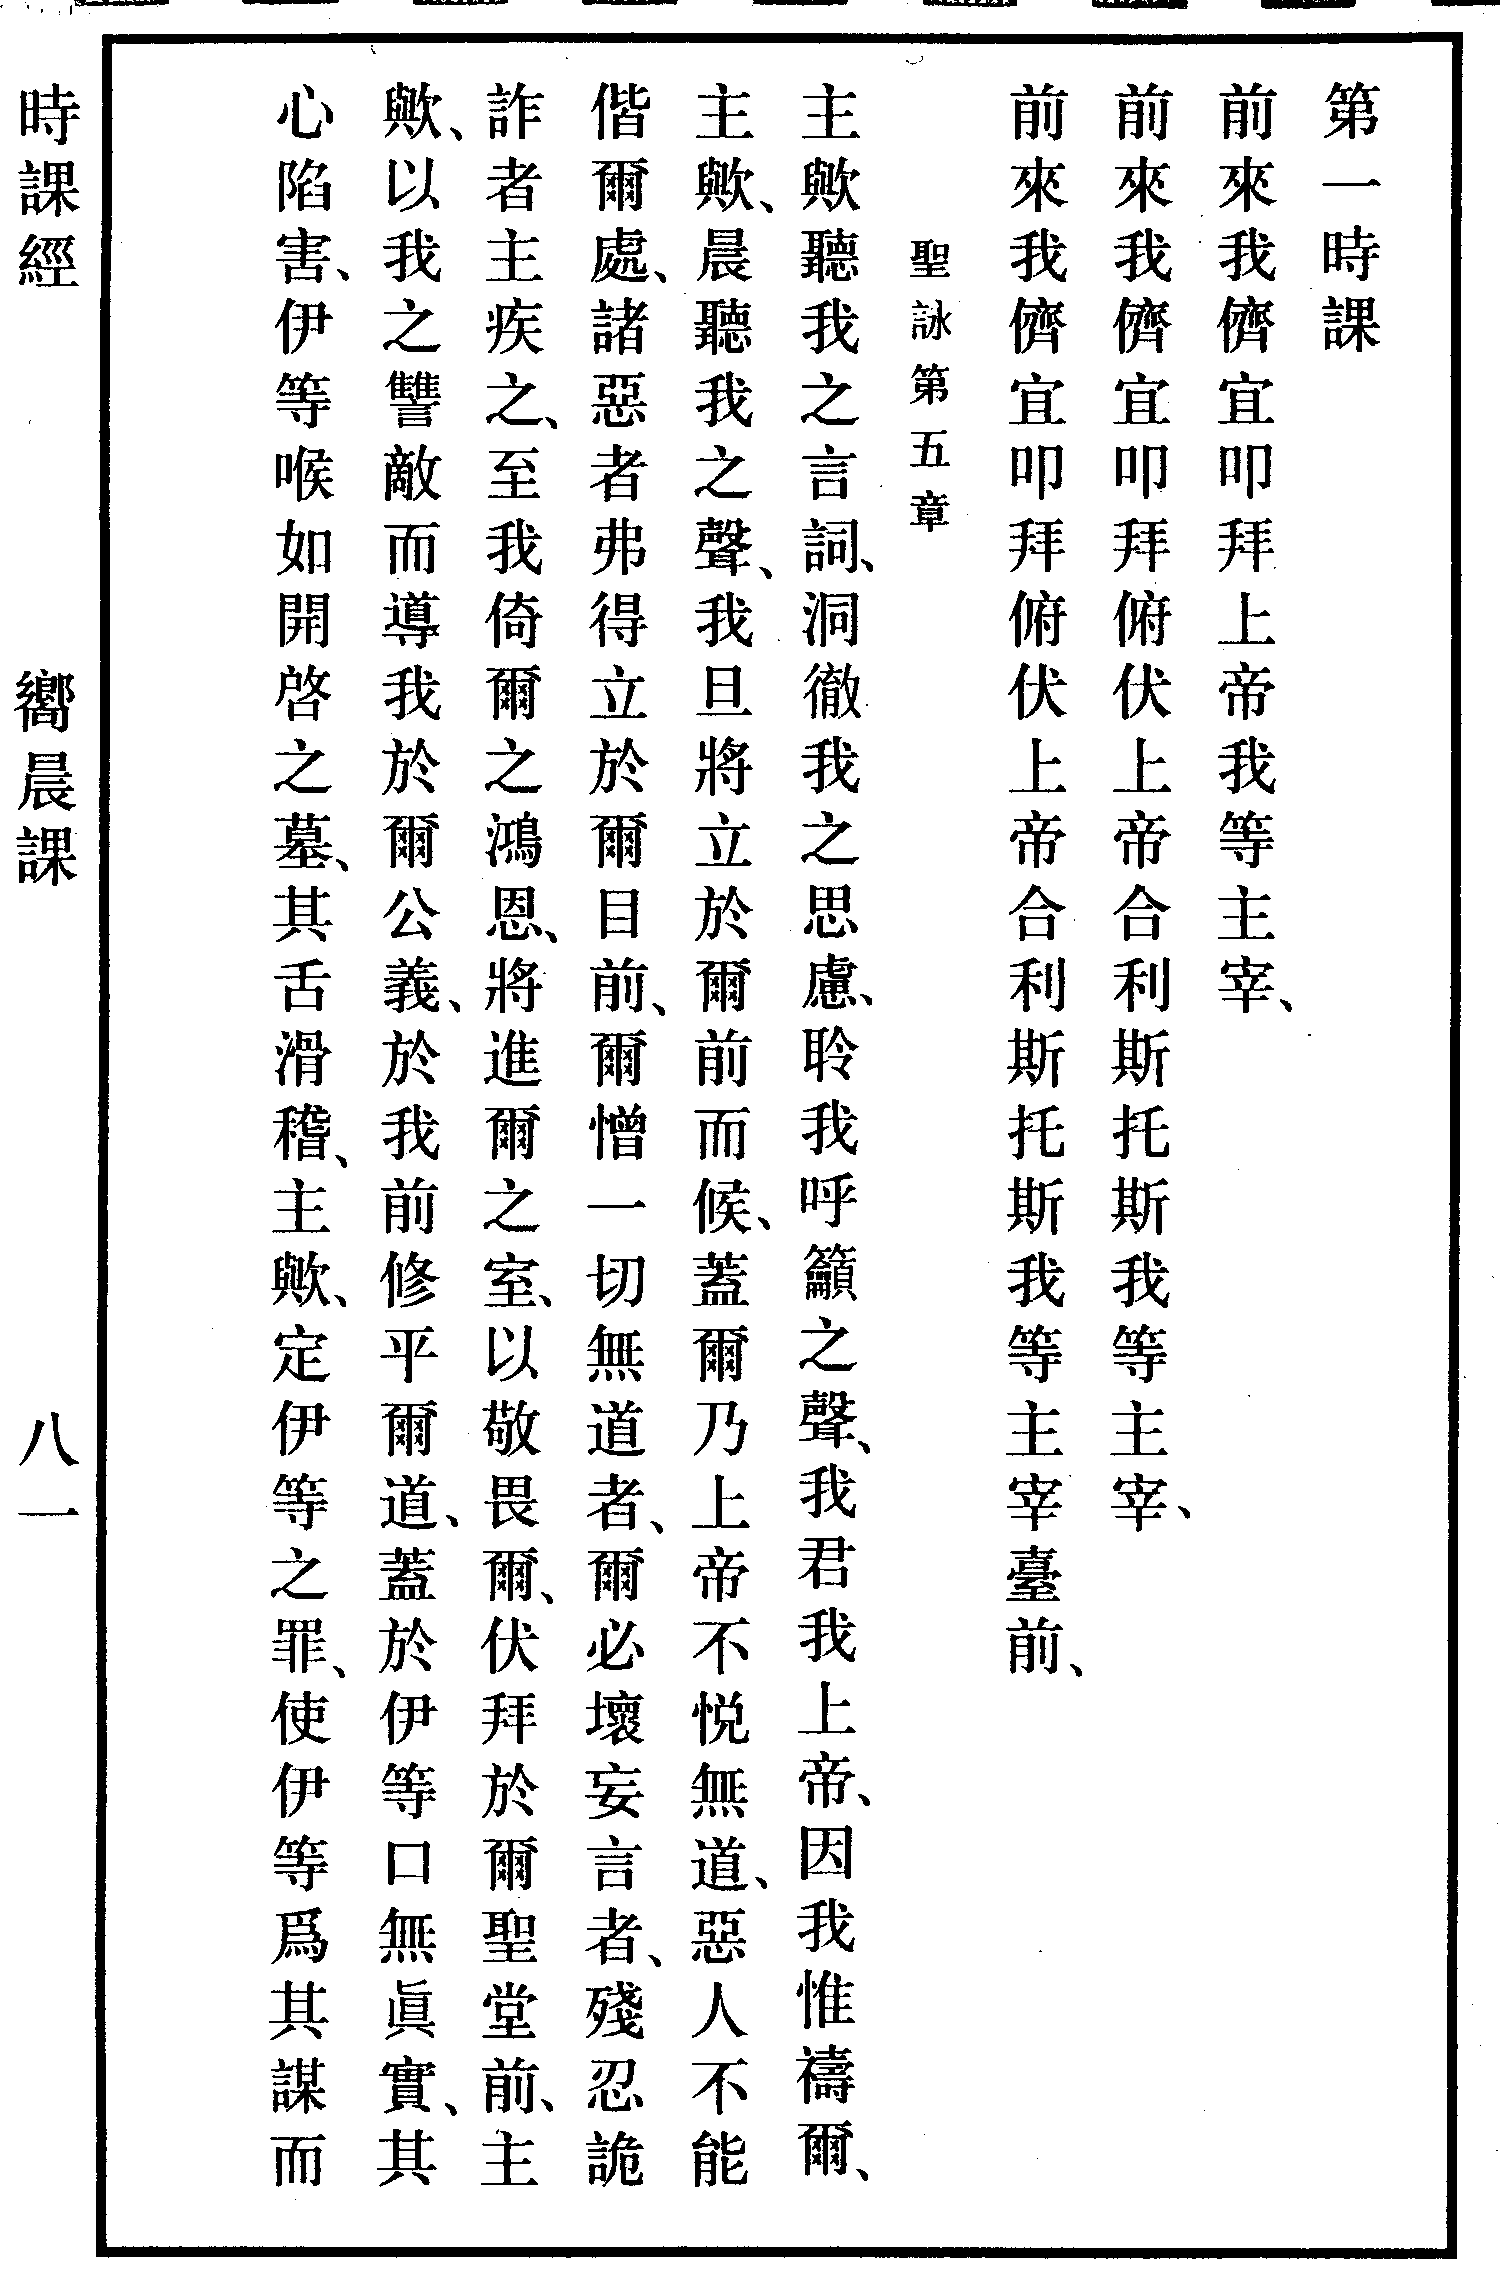 第一時課
前來我儕宜叩拜上帝我等主宰、
前來我儕宜叩拜俯伏上帝合利斯托斯我等主宰、
前來我儕宜叩拜俯伏上帝合利斯托斯我等主宰臺前、
聖詠第五章
主歟聽我之言詞、洞徹我之思慮、聆我呼籲之聲、我君我上帝、因我惟禱爾、
主歟、晨聽我之聲、我旦將立於爾前而候、蓋爾乃上帝不悅無道、惡人不能
偕爾處、諸惡者弗得立於爾目前、爾憎一切無道者、爾必壞妄言者、殘忍詭
詐者主疾之、至我倚爾之鴻恩、將進爾之室、以敬畏爾、伏拜於爾聖堂前、主
歟、以我之讐敵而導我於爾公義、於我前修平爾道、蓋於伊等口無眞實、其
心陷害、伊等喉如開啓之墓、其舌滑稽、主歟、定伊等之罪、使伊等爲其謀而
時課經 嚮晨課 八一